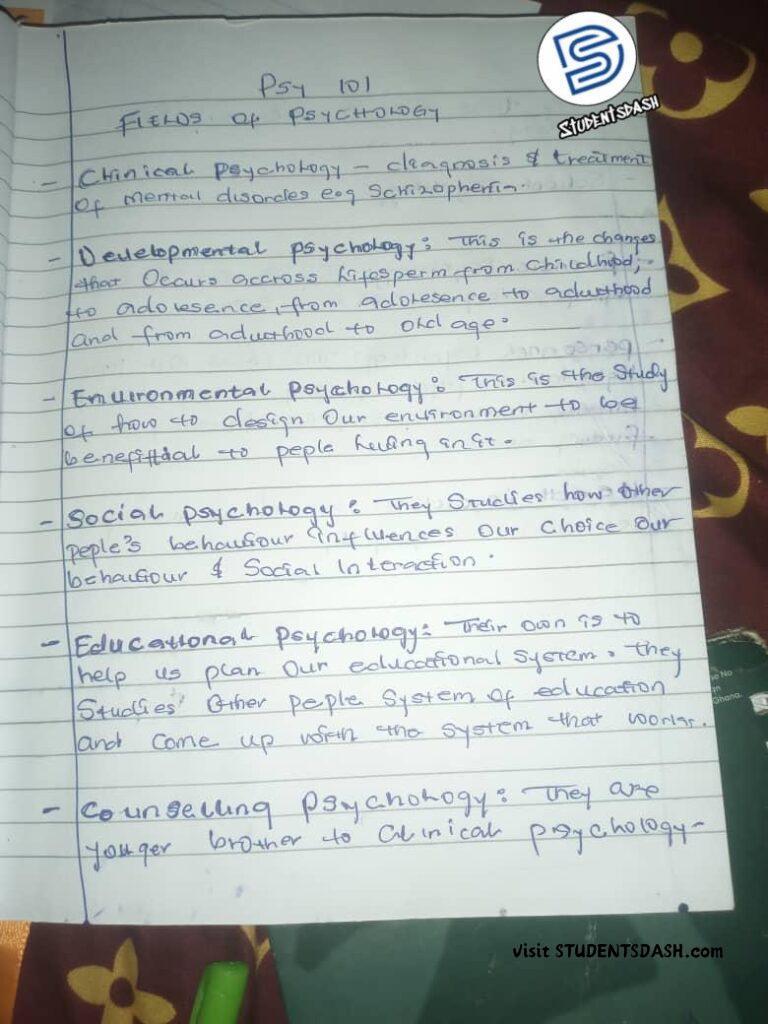 STUDENTSDASH
Psy 101
FIELDS OF PSYCHOLOGY
- Clinical psychology - diagnosis & treatment
of mental disorders eog Schizophernia.
- Developmental psychology: This is the changes
that Occurs accross lifesperm from childhood,
to adolesence, from adolesence to adulthood
and from adulthood to old age.
- Environmental psychology: This is the study
of how to design Our environment to be
benefittial to peple living in it.
- Social psychology: They Studies how other
peple's behaviour influences our choice our
behaviour & Social Interaction.
- Educational psychology: Their own is to
help us plan our educational system. they
Studies other peple system of education
and come up with the system that works.
- Counselling psychology: They are
younger brother to clinical psychology-
No
Ghana
visit STUDENTSDASH.com